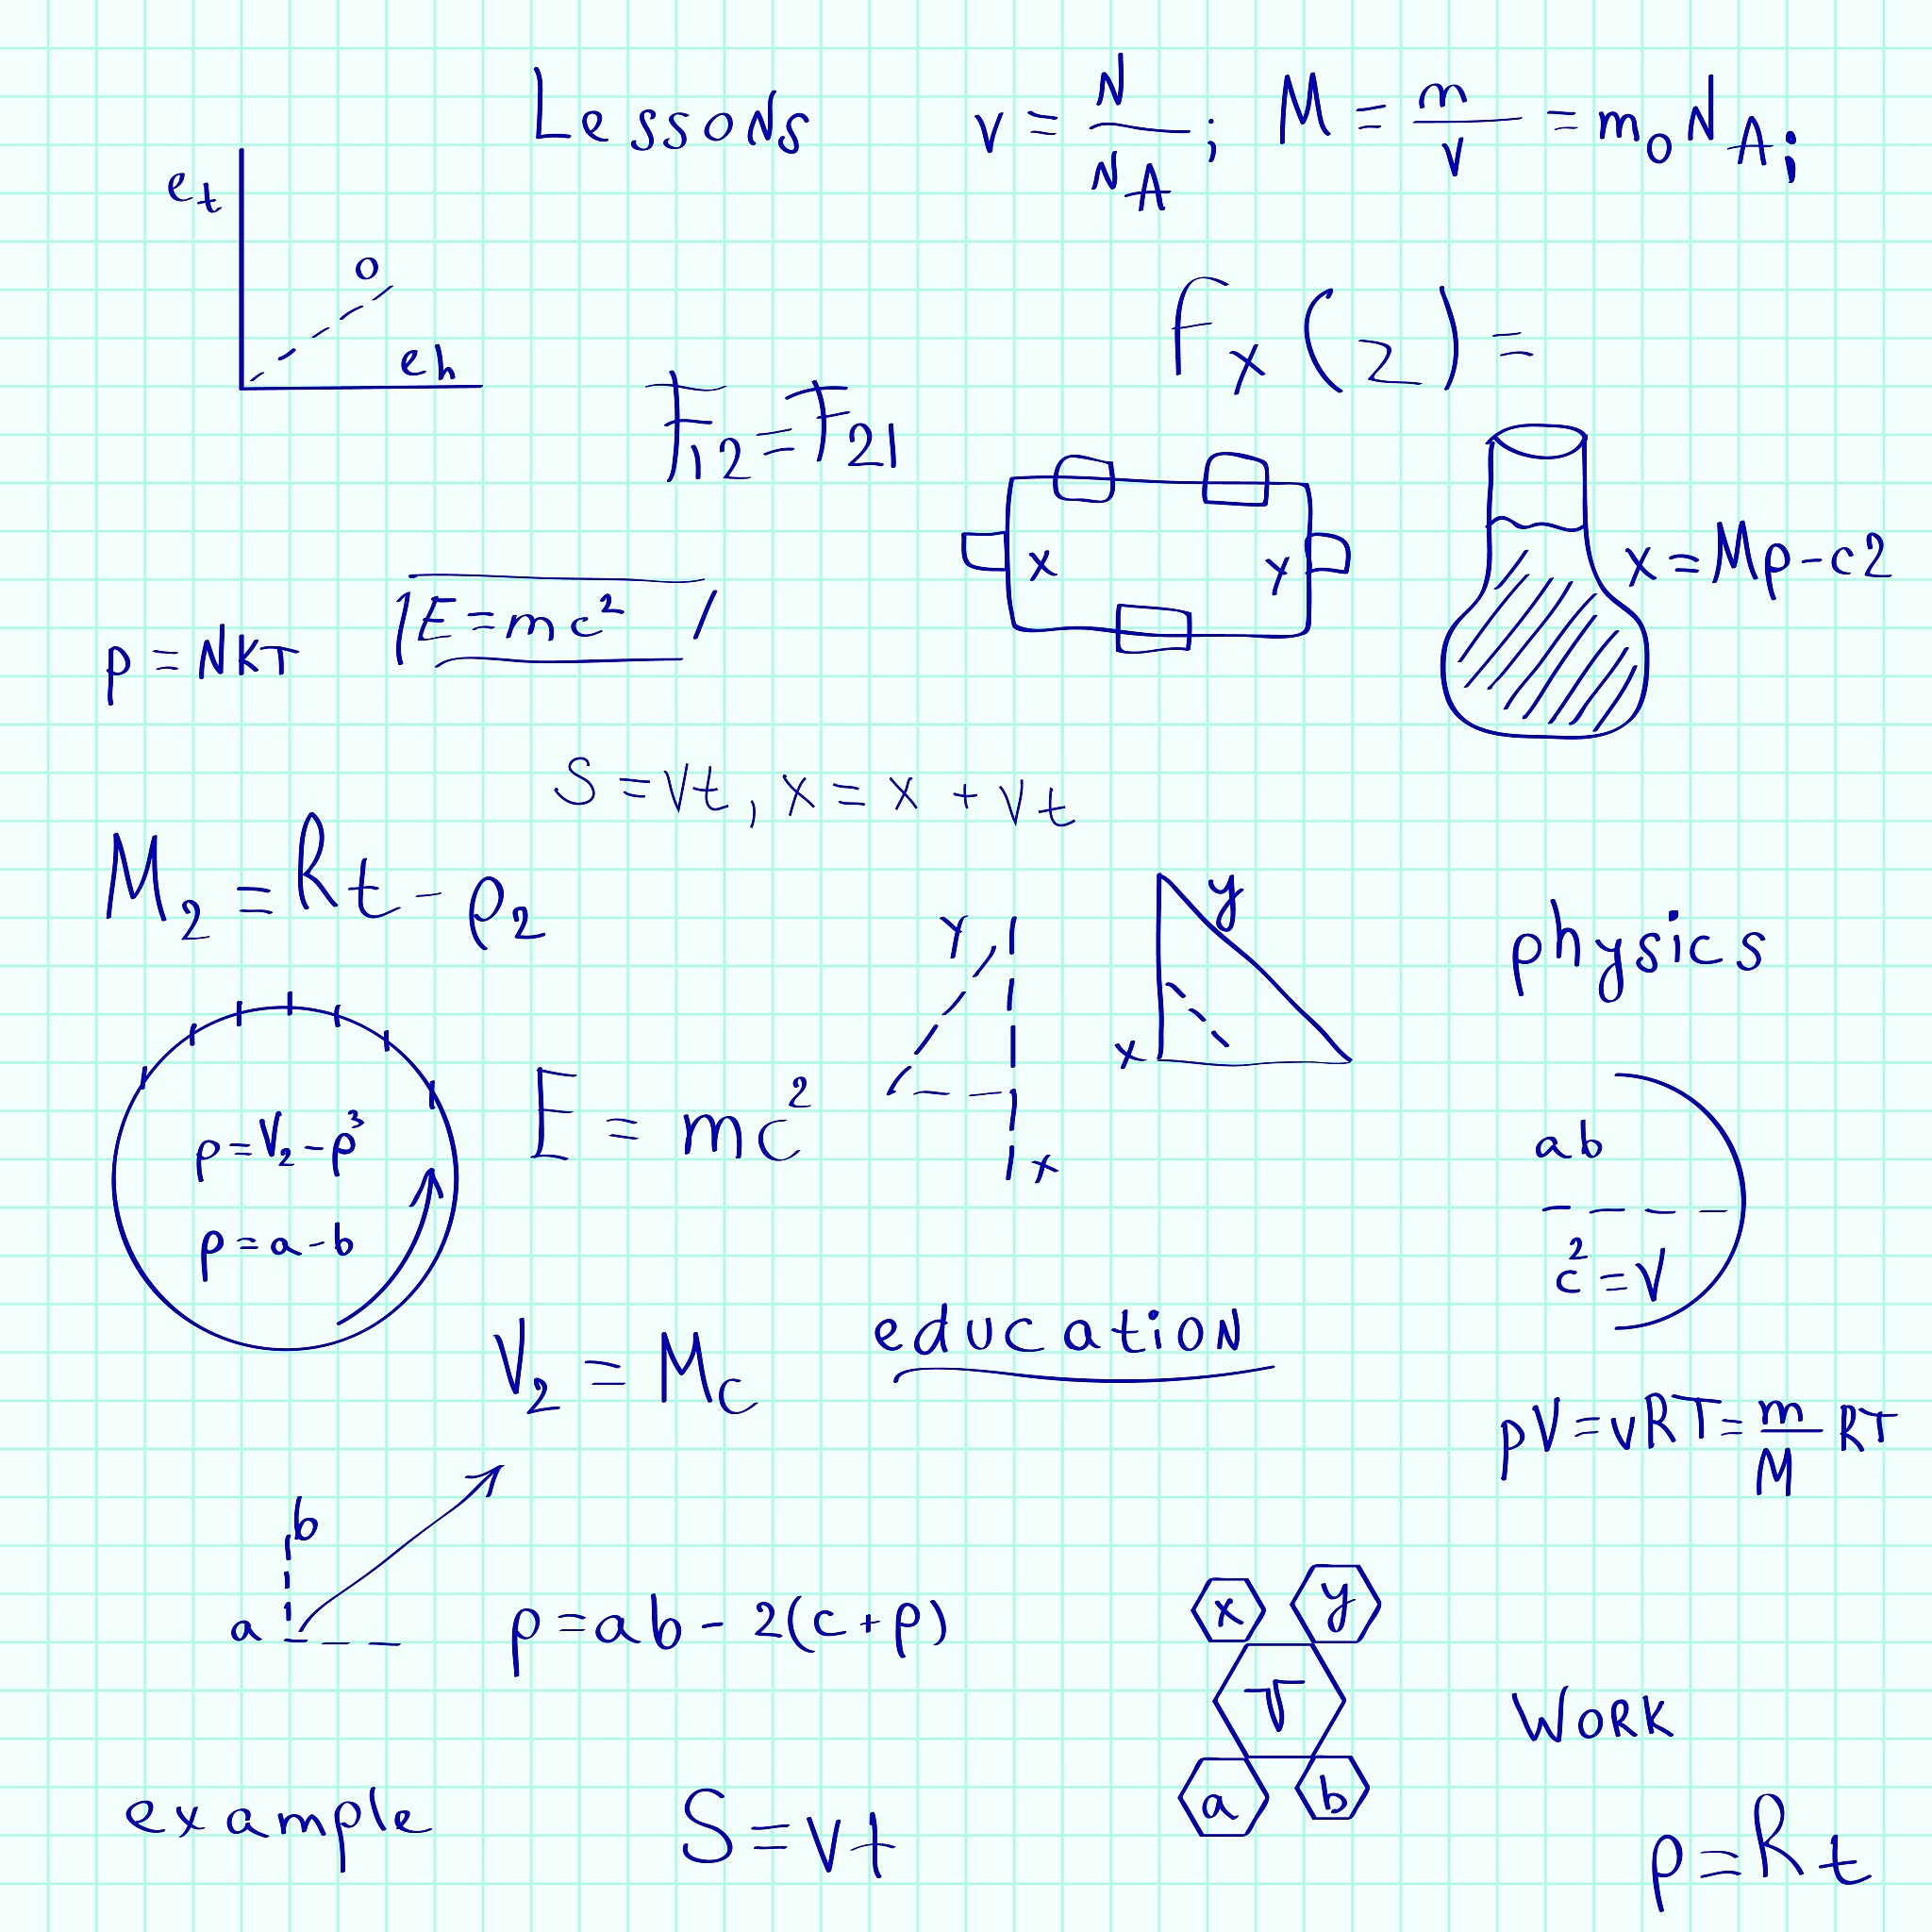 Lessons
v = N/NA; M = m/v = m₀NA;
et
o
eh
fx(2) =
F12 = F21
x y
x = Mp - c2
E = mc²
p = NKT
S = Vt, x = x + Vt
M₂ = Rt - ρ₂
y
x
y
x
physics
p = V₂ - p³
p = a - b
E = mc²
ab
c² = V
V₂ = Mc
education
pV = vRT = m/M RT
b
a
p = ab - 2(c + p)
x y
V
a b
WORK
example
S = Vt
p = Rt